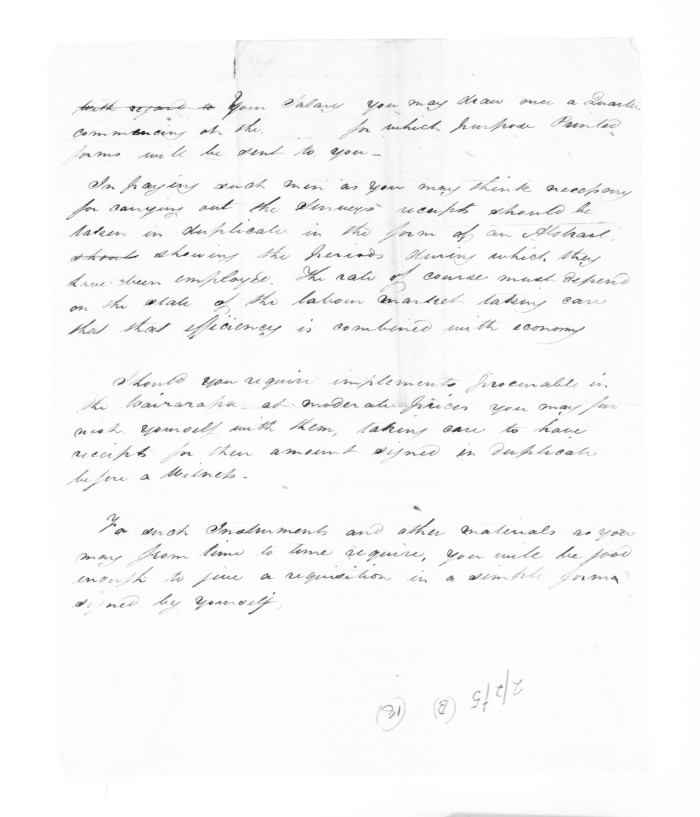 With regard to Your Salary you may draw once a Quarter
commencing on the. for which purpose Printed
forms will be sent to you -
In paying such men as you may think necessary
for carrying out the Surveys receipts should be
taken in duplicate in the form of an Abstract,
should showing the periods during which they
have been employed. The rate of course must depend
on the state of the labour market taking care
that that efficiency is combined with economy
Should you require implements procurable in
the Wairarapa at moderate prices you may fur
nish yourself with them, taking care to have
receipts for their amount signed in duplicate
before a Witness.
For such Instruments and other materials as you
may from time to time require, you will be good
enough to give a requisition in a simple form
signed by yourself,
(B)